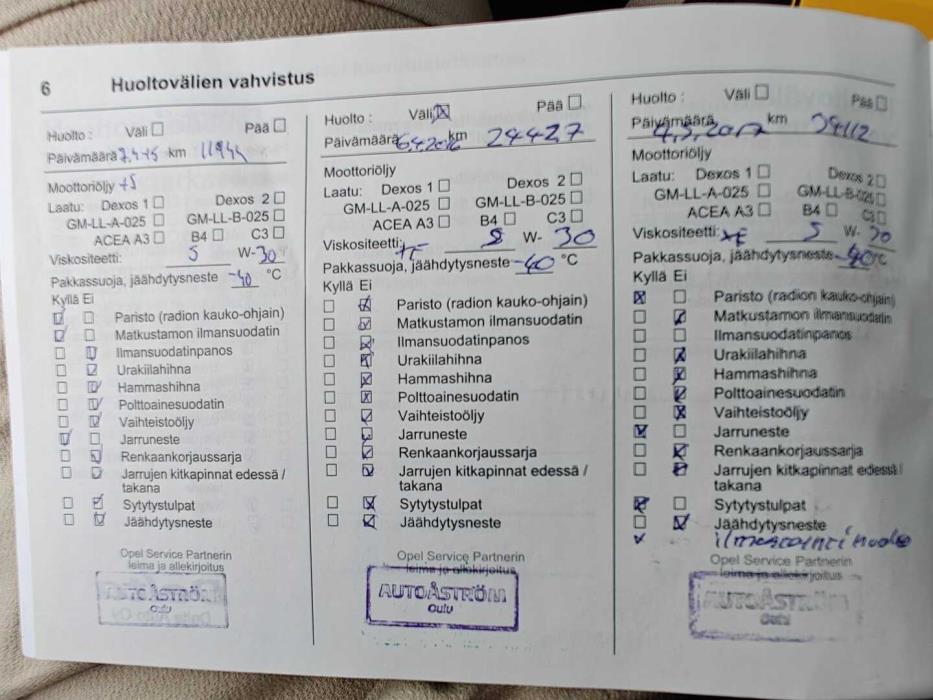 6 Huoltovälien vahvistus
Huolto : Väli Pää
Päivämäärä km 11944
Moottoriöljy
Laatu: Dexos 1 Dexos 2
GM-LL-A-025 GM-LL-B-025
ACEA A3 B4 C3
Viskositeetti: 5 W- 30
Pakkassuoja, jäähdytysneste -40 °C
Kyllä Ei
Paristo (radion kauko-ohjain)
Matkustamon ilmansuodatin
Ilmansuodatinpanos
Urakiilahihna
Hammashihna
Polttoainesuodatin
Vaihteistoöljy
Jarruneste
Renkaankorjaussarja
Jarrujen kitkapinnat edessä /
takana
Sytytystulpat
Jäähdytysneste
Opel Service Partnerin
leima ja allekirjoitus
AUTOÅSTRÖM
Oulu
Huolto : Väli Pää
Päivämäärä 6.4.2016 km 24427
Moottoriöljy
Laatu: Dexos 1 Dexos 2
GM-LL-A-025 GM-LL-B-025
ACEA A3 B4 C3
Viskositeetti: 5 W- 30
Pakkassuoja, jäähdytysneste -40 °C
Kyllä Ei
Paristo (radion kauko-ohjain)
Matkustamon ilmansuodatin
Ilmansuodatinpanos
Urakiilahihna
Hammashihna
Polttoainesuodatin
Vaihteistoöljy
Jarruneste
Renkaankorjaussarja
Jarrujen kitkapinnat edessä /
takana
Sytytystulpat
Jäähdytysneste
Opel Service Partnerin
leima ja allekirjoitus
AUTOÅSTRÖM
Oulu
Huolto : Väli Pää
Päivämäärä 4.5.2017 km 39112
Moottoriöljy
Laatu: Dexos 1 Dexos 2
GM-LL-A-025 GM-LL-B-025
ACEA A3 B4 C3
Viskositeetti: 5 W- 30
Pakkassuoja, jäähdytysneste -40 °C
Kyllä Ei
Paristo (radion kauko-ohjain)
Matkustamon ilmansuodatin
Ilmansuodatinpanos
Urakiilahihna
Hammashihna
Polttoainesuodatin
Vaihteistoöljy
Jarruneste
Renkaankorjaussarja
Jarrujen kitkapinnat edessä /
takana
Sytytystulpat
Jäähdytysneste
ilmastointihuolto
Opel Service Partnerin
leima ja allekirjoitus
AUTOÅSTRÖM
Oulu